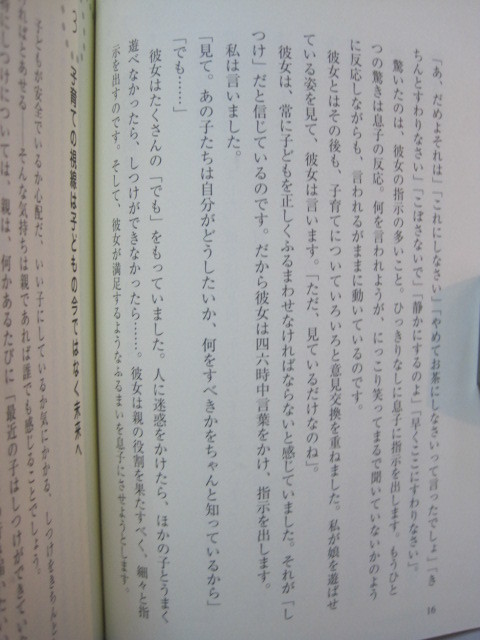 16
「あ、だめよそれは」「これにしなさい」「やめてお茶にしなさいって言ったでしょ」「き
ちんとすわりなさい」「こぼさないで」「静かにするのよ」「早くここにすわりなさい」。
驚いたのは、彼女の指示の多いこと。ひっきりなしに息子に指示を出します。もうひと
つの驚きは息子の反応。何を言われようが、にっこり笑ってまるで聞いていないかのよう
に反応しながらも、言われるがままに動いているのです。
彼女とはその後も、子育てについていろいろと意見交換を重ねました。私が娘を遊ばせ
ている姿を見て、彼女は言います。「ただ、見ているだけなのね」。
彼女は、常に子どもを正しくふるまわせなければならないと感じていました。それが「し
つけ」だと信じているのです。だから彼女は四六時中言葉をかけ、指示を出します。
私は言いました。
「見て。あの子たちは自分がどうしたいか、何をすべきかをちゃんと知っているから」
「でも……」
彼女はたくさんの「でも」をもっていました。人に迷惑をかけたら、ほかの子とうまく
遊べなかったら、しつけができなかったら……。彼女は親の役割を果たすべく、細々と指
示を出すのです。そして、彼女が満足するようなふるまいを息子にさせようとします。
3 子育ての視線は子どもの今ではなく未来へ
子どもが安全でいるか心配だ、いい子にしているか気にかかる、しつけをきちんと
ればとあせる――そんな気持ちは親であれば誰でも感じることでしょう。
しつけについては、親は、何かあるたびに「最近の子はしつけができてい